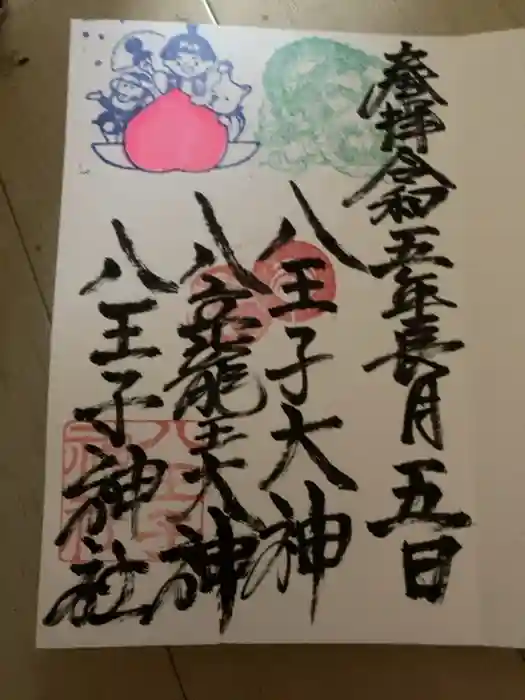 奉拝令和五年長月五日
八王子大神
八大龍王大神
八王子神社
八王子神社